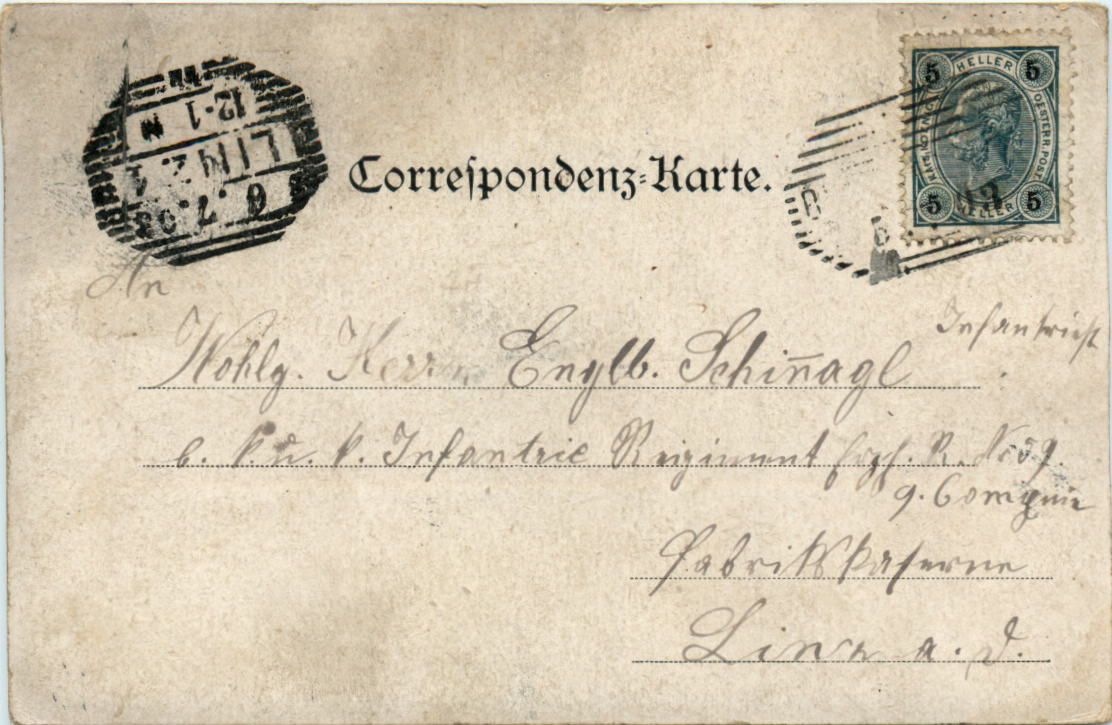 12-1 N
LINZ 2
6.7.03
Correspondenz-Karte.
5 HELLER 5
KAIS. KÖNIGL. OESTERR. POST
5 HELLER 5
An
Infanterist
Wohlg. Herrn Englb. Schinagl
b. k. u. k. Infantrie Regiment R. Nr 59.
9. Compnie
Fabrikskaserne
Linz a. D.